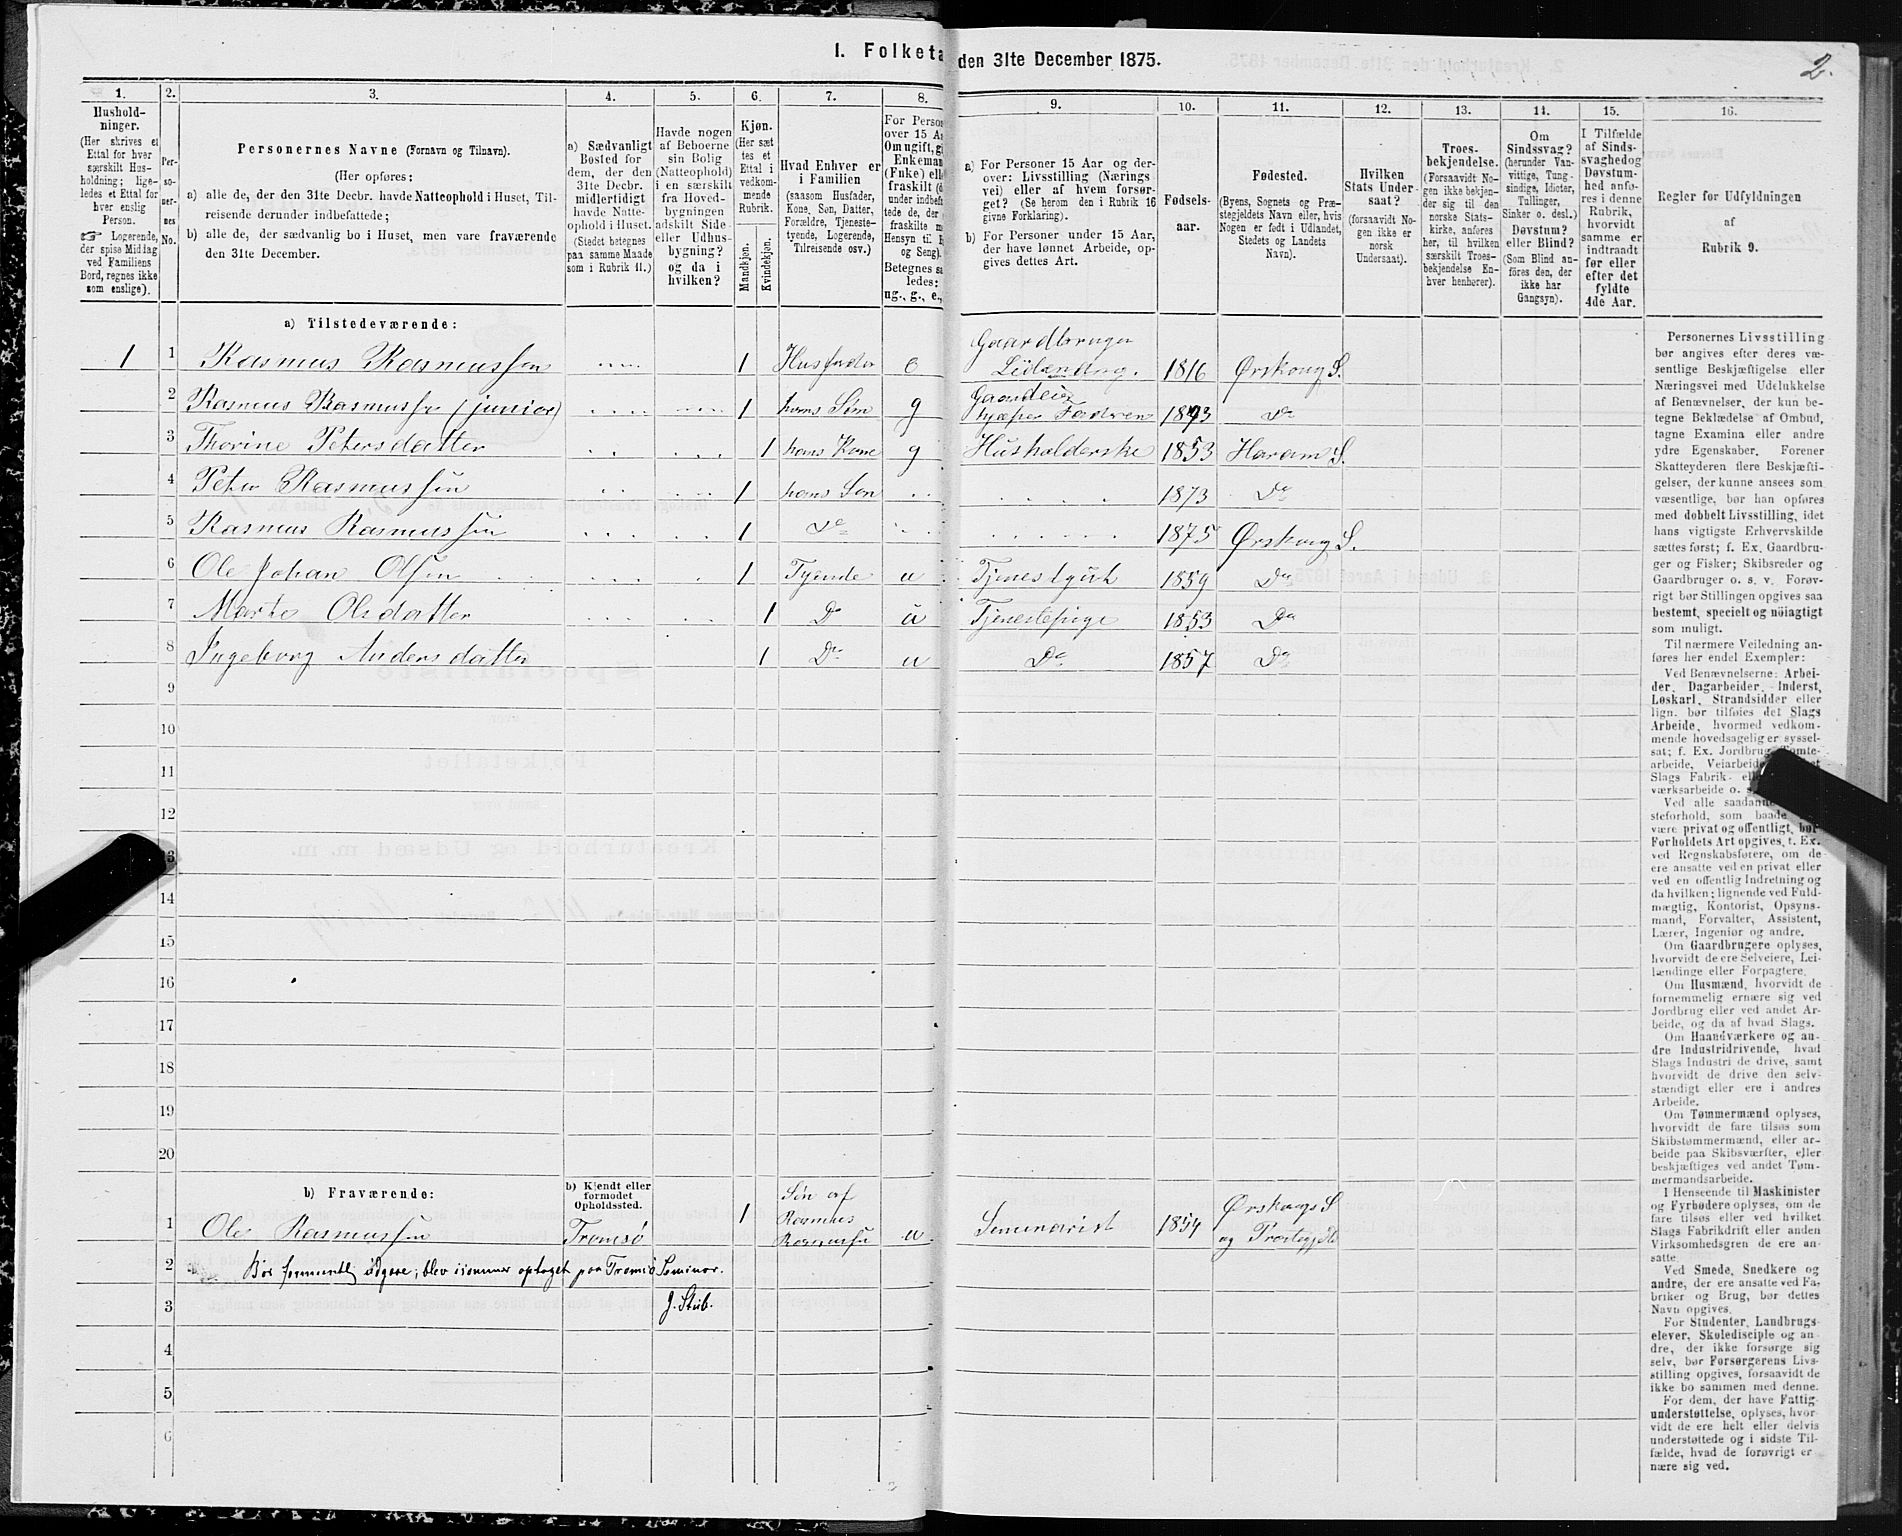 I. Folketa den 31te December 1875.
2.
1. 2. 3. 4. 5. 6. 7. 8. 9. 10. 11. 12. 13. 14. 15. 16.
Hushold-
ninger.
(Her skrives et
Ettal for hver
særskilt Hus-
holdning; lige-
ledes et Ettal for
hver enslig
Person.
☞ Logerende,
der spise Middag
ved Familiens
Bord, regnes ikke
som enslige).
Per-
so-
ner-
nes
No.
Personernes Navne (Fornavn og Tilnavn).
(Her opføres:
a) alle de, der den 31te Decbr. havde Natteophold i Huset, Til-
reisende derunder indbefattede;
b) alle de, der sædvanlig bo i Huset, men vare fraværende
den 31te December.
a) Sædvanligt
Bosted for
dem, der den
31te Decbr.
midlertidigt
havde Natte-
ophold i Huset.
(Stedet betegnes
paa samme Maade
som i Rubrik 11.)
Havde nogen
af Beboerne
sin Bolig
(Natteophold)
i en særskilt
fra Hoved-
bygningen
adskilt Side-
eller Udhus-
bygning?
og da i
hvilken?
Kjøn.
(Her sæt-
tes et
Ettal i
vedkom-
mende
Rubrik.
Mandkjøn.
Kvindekjøn.
Hvad Enhver er
i Familien
(saasom Husfader,
Kone, Søn, Datter,
Forældre, Tjeneste-
tyende, Logerende,
Tilreisende osv.)
For Person
over 15 Aa
Om ugift, g
Enkeman
(Fnke) el
fraskilt (d
under indbef
tede de, der
fraskilte m
Hensyn til
og Seng).
Betegnes sa
ledes:
ug., g., e.,
a) For Personer 15 Aar og der-
over: Livsstilling (Nærings-
vei) eller af hvem forsør-
get? (Se herom den i Rubrik 16
givne Forklaring).
b) For Personer under 15 Aar,
der have lønnet Arbeide, op-
gives dettes Art.
Fødsels-
aar.
Fødested.
(Byens, Sognets og Præ-
stegjeldets Navn eller, hvis
Nogen er født i Udlandet,
Stedets og Landets
Navn).
Hvilken
Stats Under-
saat?
(forsaavidt No-
gen ikke er
norsk
Undersaat).
Troes-
bekjendelse.
(Forsaavidt No-
gen ikke bekjen-
der sig til den
norske Stats-
kirke, anføres
her, til hvilken
særskilt Troes-
bekjendelse En-
hver henhører).
Om
Sindssvag?
(herunder Van-
vittige, Tung-
sindige, Idioter,
Tullinger,
Sinker o. desl.)
Døvstum?
eller Blind?
(Som Blind an-
føres den, der
ikke har
Gangsyn).
I Tilfælde
af Sinds-
svaghedog
Døvstum-
hed anfø-
res i denne
Rubrik,
hvorvidt
samme er
indtrandt
før eller
efter det
fyldte
4de Aar.
Regler for Udfyldningen
af
Rubrik 9.
a) Tilstedeværende:
1 1 Rasmus Rasmussen 1 Husfader e Gaardbruger Leilænding. 1816 Ørskoug S.
2 Rasmus Rasmussen (junior) 1 hans Søn g Gaardeier hjælper Faderen 1843 Do
3 Thorine Petersdatter 1 hans Kone g Husholderske 1853 Haram S.
4 Peter Rasmussen 1 hans Søn 1873 Do
5 Rasmus Rasmussen 1 Do 1875 Ørskoug S.
6 Ole Johan Olsen 1 Tyende u Tjenestgut 1859 Do
7 Marte Olsdatter 1 Do u Tjenestepige 1853 Do
8 Ingeborg Andersdatter 1 Do u Do 1857 Do
9
10
11
12
13
14
15
16
17
18
19
20
b) Fraværende:
b) Kjendt eller
formodet
Opholdssted.
1 Ole Rasmussen Tromsø 1 Søn af Rasmus Rasmussen u. Seminarist 1854 Ørskougs S og Præstegj.
2 Bør formentlig udgaae; blev isommer optaget paa Tromsø Seminar.
3 J. Stub.
4
5
6
Personernes Livsstilling
bør angives efter deres væ-
sentlige Beskjæftigelse eller
Næringsvei med Udelukkelse
af Benævnelser, der kun be-
tegne Beklædelse af Ombud,
tagne Examina eller andre
ydre Egenskaber. Forener
Skatteyderen flere Beskjæfti-
gelser, der kunne ansees som
væsentlige, bør han opføres
med dobbelt Livsstilling, idet
hans vigtigste Erhvervskilde
sættes først; f. Ex. Gaardbru-
ger og Fisker; Skibsreder og
Gaardbruger o. s. v. Forøv-
rigt bør Stillingen opgives saa
bestemt, specielt og nøiagtigt
som muligt.
Til nærmere Veiledning an-
føres her endel Exempler:
Ved Benævnelserne: Arbei-
der, Dagarbeider, Inderst,
Løskarl, Strandsidder eller
lign. bør tilføies det Slags
Arbeide, hvormed vedkom-
mende hovedsagelig er syssel-
sat; f. Ex. Jordbrug, Tomte-
arbeide, Veiarbeide,
Slags Fabrik-
værksarbeide o. s.
Ved alle saadanne
steforhold, som baade
være privat og offentligt, bør
Forholdets Art opgives, f. Ex.
ved Regnskabsførere, om de
ere ansatte ved en privat eller
ved en offentlig Indretning og
da hvilken; lignende ved Fuld-
mægtig, Kontorist, Opsyns-
mand, Forvalter, Assistent,
Lærer, Ingeniør og andre.
Om Gaardbrugere oplyses,
hvorvidt de ere Selveiere, Lei-
lændinge eller Forpagtere.
Om Husmænd, hvorvidt de
fornemmelig ernære sig ved
Jordbrug eller ved andet Ar-
beide, og da af hvad Slags.
Om Haandværkere og an-
dre Industridrivende, hvad
Slags Industri de drive, samt
hvorvidt de drive den selv-
stændigt eller ere i andres
Arbeide.
Om Tømmermænd oplyses,
hvorvidt de fare tilsøs som
Skibstømmermænd, eller ar-
beide paa Skibsværfter, eller
beskjæftiges ved andet Tøm-
mermandsarbeide.
I Henseende til Maskinister
og Fyrbødere oplyses, om de
fare tilsøs eller ved hvilket
Slags Fabrikdrift eller anden
Virksomhedsgren de ere an-
satte.
Ved Smede, Snedkere og
andre, der ere ansatte ved Fa-
briker og Brug, bør dettes
Navn opgives.
For Studenter, Landbrugs-
elever, Skoledisciple og an-
dre, der ikke forsørge sig
selv, bør Forsørgerens Livs-
stilling opgives, forsaavidt de
ikke bo sammen med denne.
For dem, der have Fattig-
understøttelse, oplyses, hvor-
vidt de ere helt eller delvis
understøttede og i sidste Til-
fælde, hvad de forøvrigt er
nære sig ved.